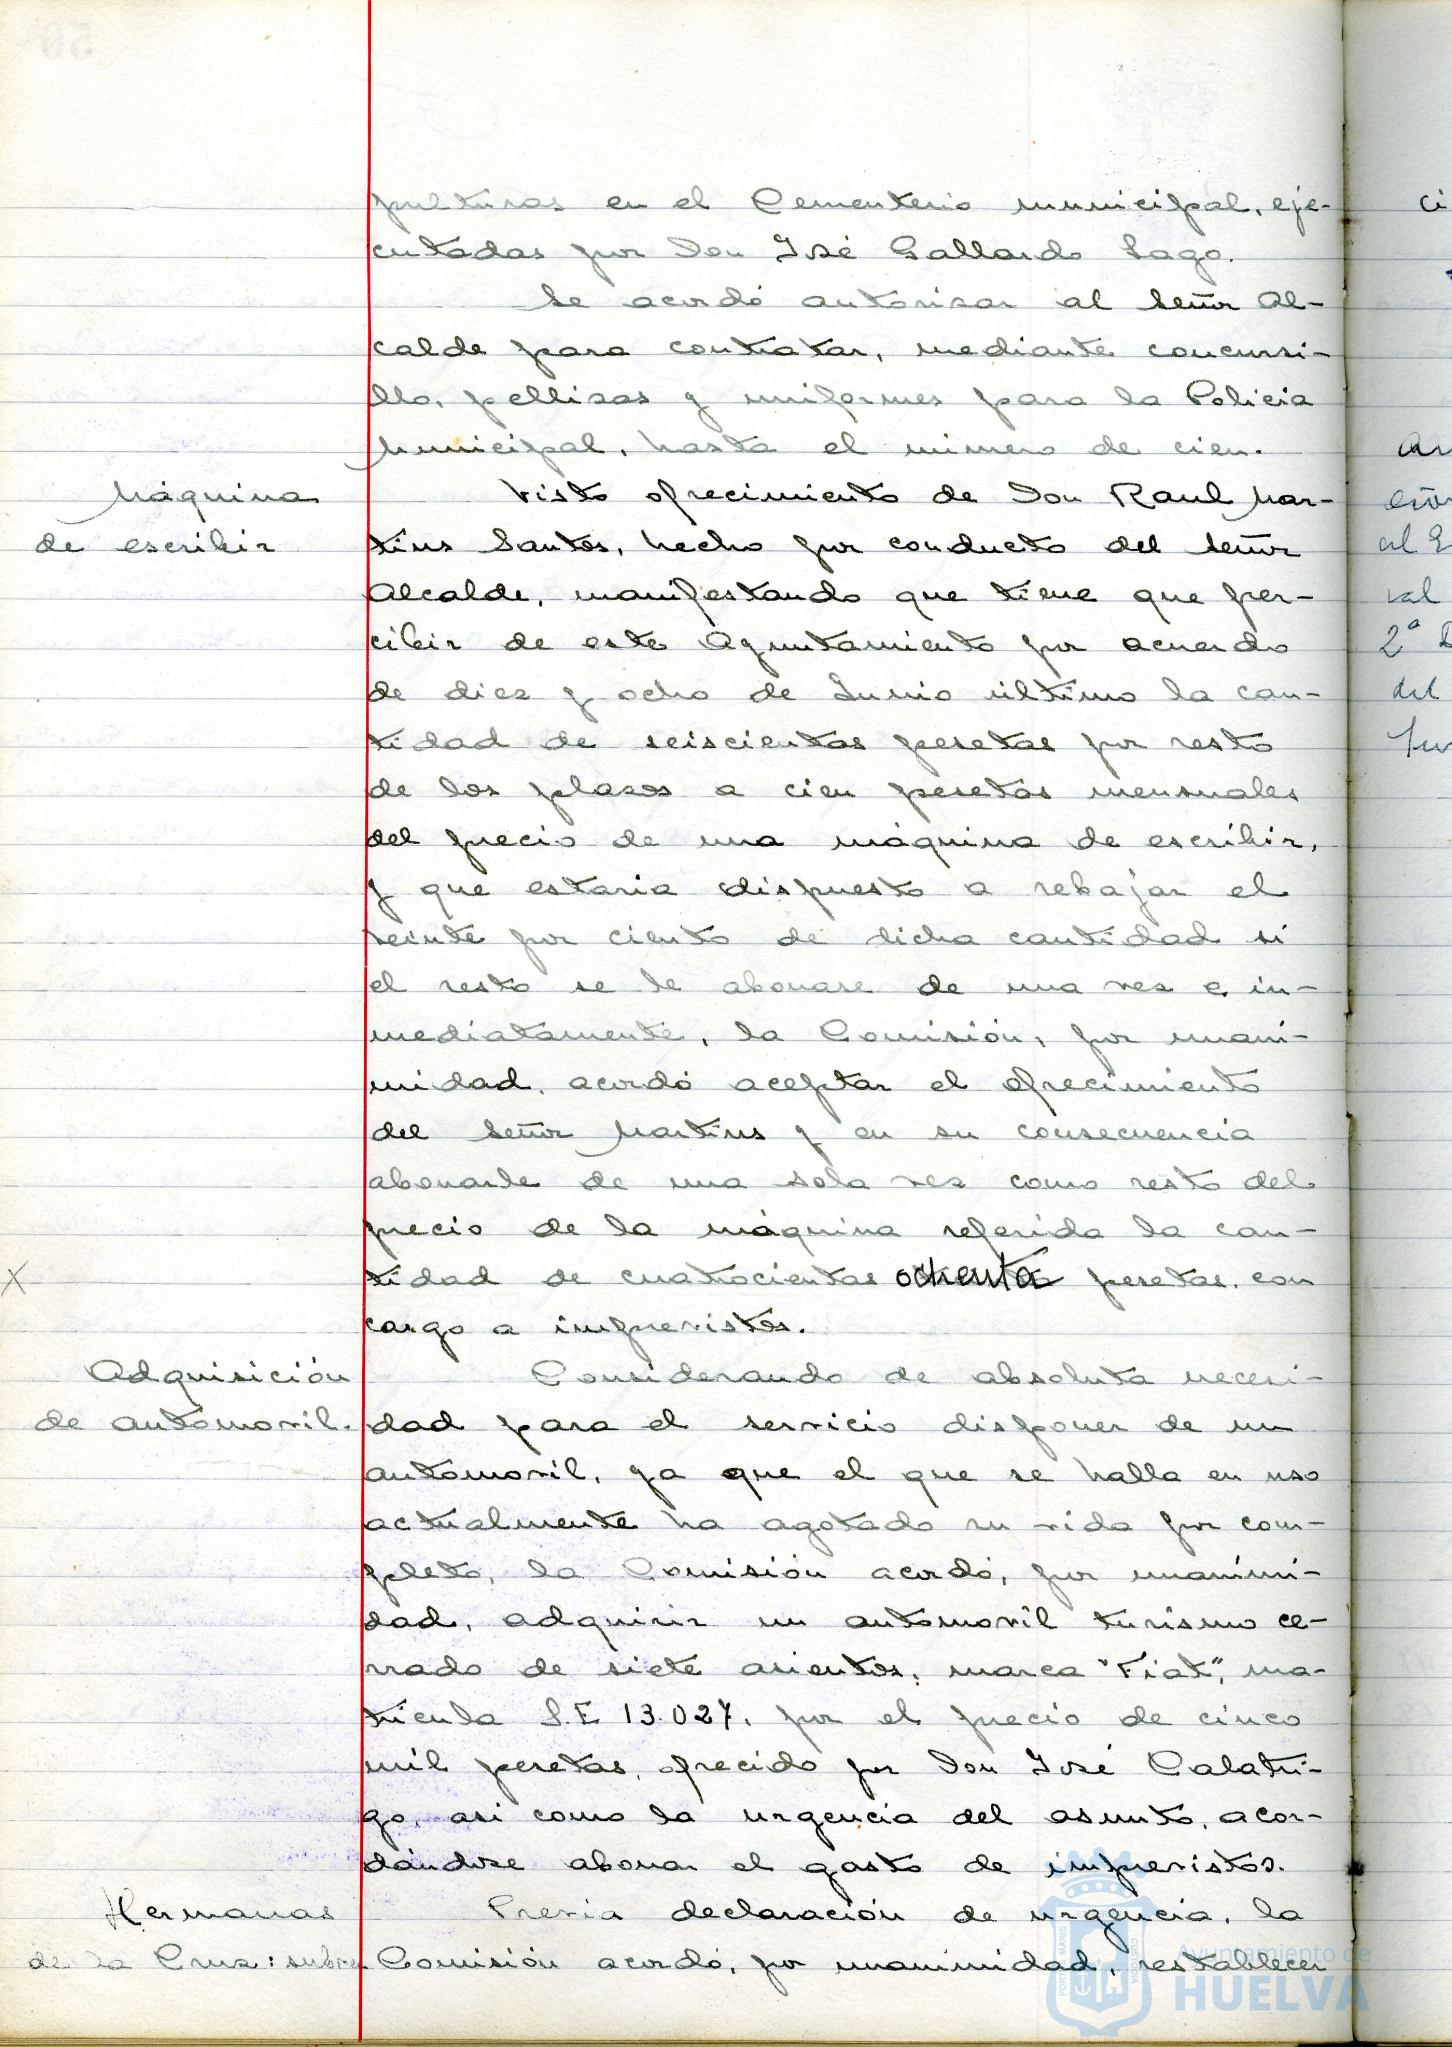 pulturas en el Cementerio municipal, eje-
cutadas por Don José Gallardo Lago.
Se acordó autorizar al Señor Al-
calde para contratar, mediante concursi-
llo, pellizas y uniformes para la Policia
Municipal, hasta el número de cien.
Máquina
de escribir
Visto ofrecimiento de Don Raul Mar-
tins Santos, hecho por conducto del Señor
Alcalde, manifestando que tiene que per-
cibir de este Ayuntamiento por acuerdo
de diez y ocho de Junio último la can-
tidad de seiscientas pesetas por resto
de los plazos a cien pesetas mensuales
del precio de una máquina de escribir,
y que estaria dispuesto a rebajar el
veinte por ciento de dicha cantidad si
el resto se le abonase de una vez e in-
mediatamente, la Comisión, por unani-
midad, acordó aceptar el ofrecimiento
del Señor Martins y en su consecuencia
abonarle de una sola vez como resto del
precio de la máquina referida la can-
X
tidad de cuatrocientas ochenta pesetas, con
cargo a imprevistos.
Adquisición
de automovil.
Considerando de absoluta necesi-
dad para el servicio disponer de un
automovil, ya que el que se halla en uso
actualmente ha agotado su vida por com-
pleto, la Comisión acordó, por unanimi-
dad, adquirir un automovil turismo ce-
rrado de siete asientos, marca "Fiat", ma-
tricula S.E 13.027, por el precio de cinco
mil pesetas, ofrecido por Don José Calatri-
go, asi como la urgencia del asunto, acor-
dándose abonar el gasto de imprevistos.
Hermanas
de la Cruz: subven
Previa declaración de urgencia, la
Comisión acordó, por unanimidad, restablecer
Ayuntamiento de
HUELVA
ci
val
2ª
del